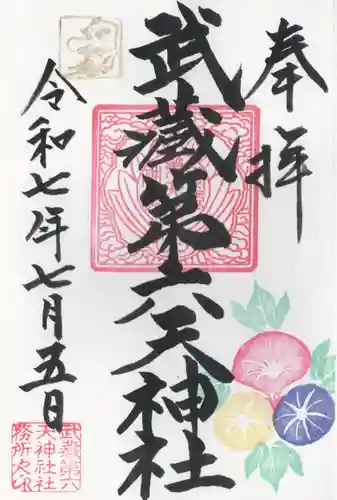 奉拝
武蔵第六天神社
令和七年七月五日
武蔵第六
天神社社
務所之印